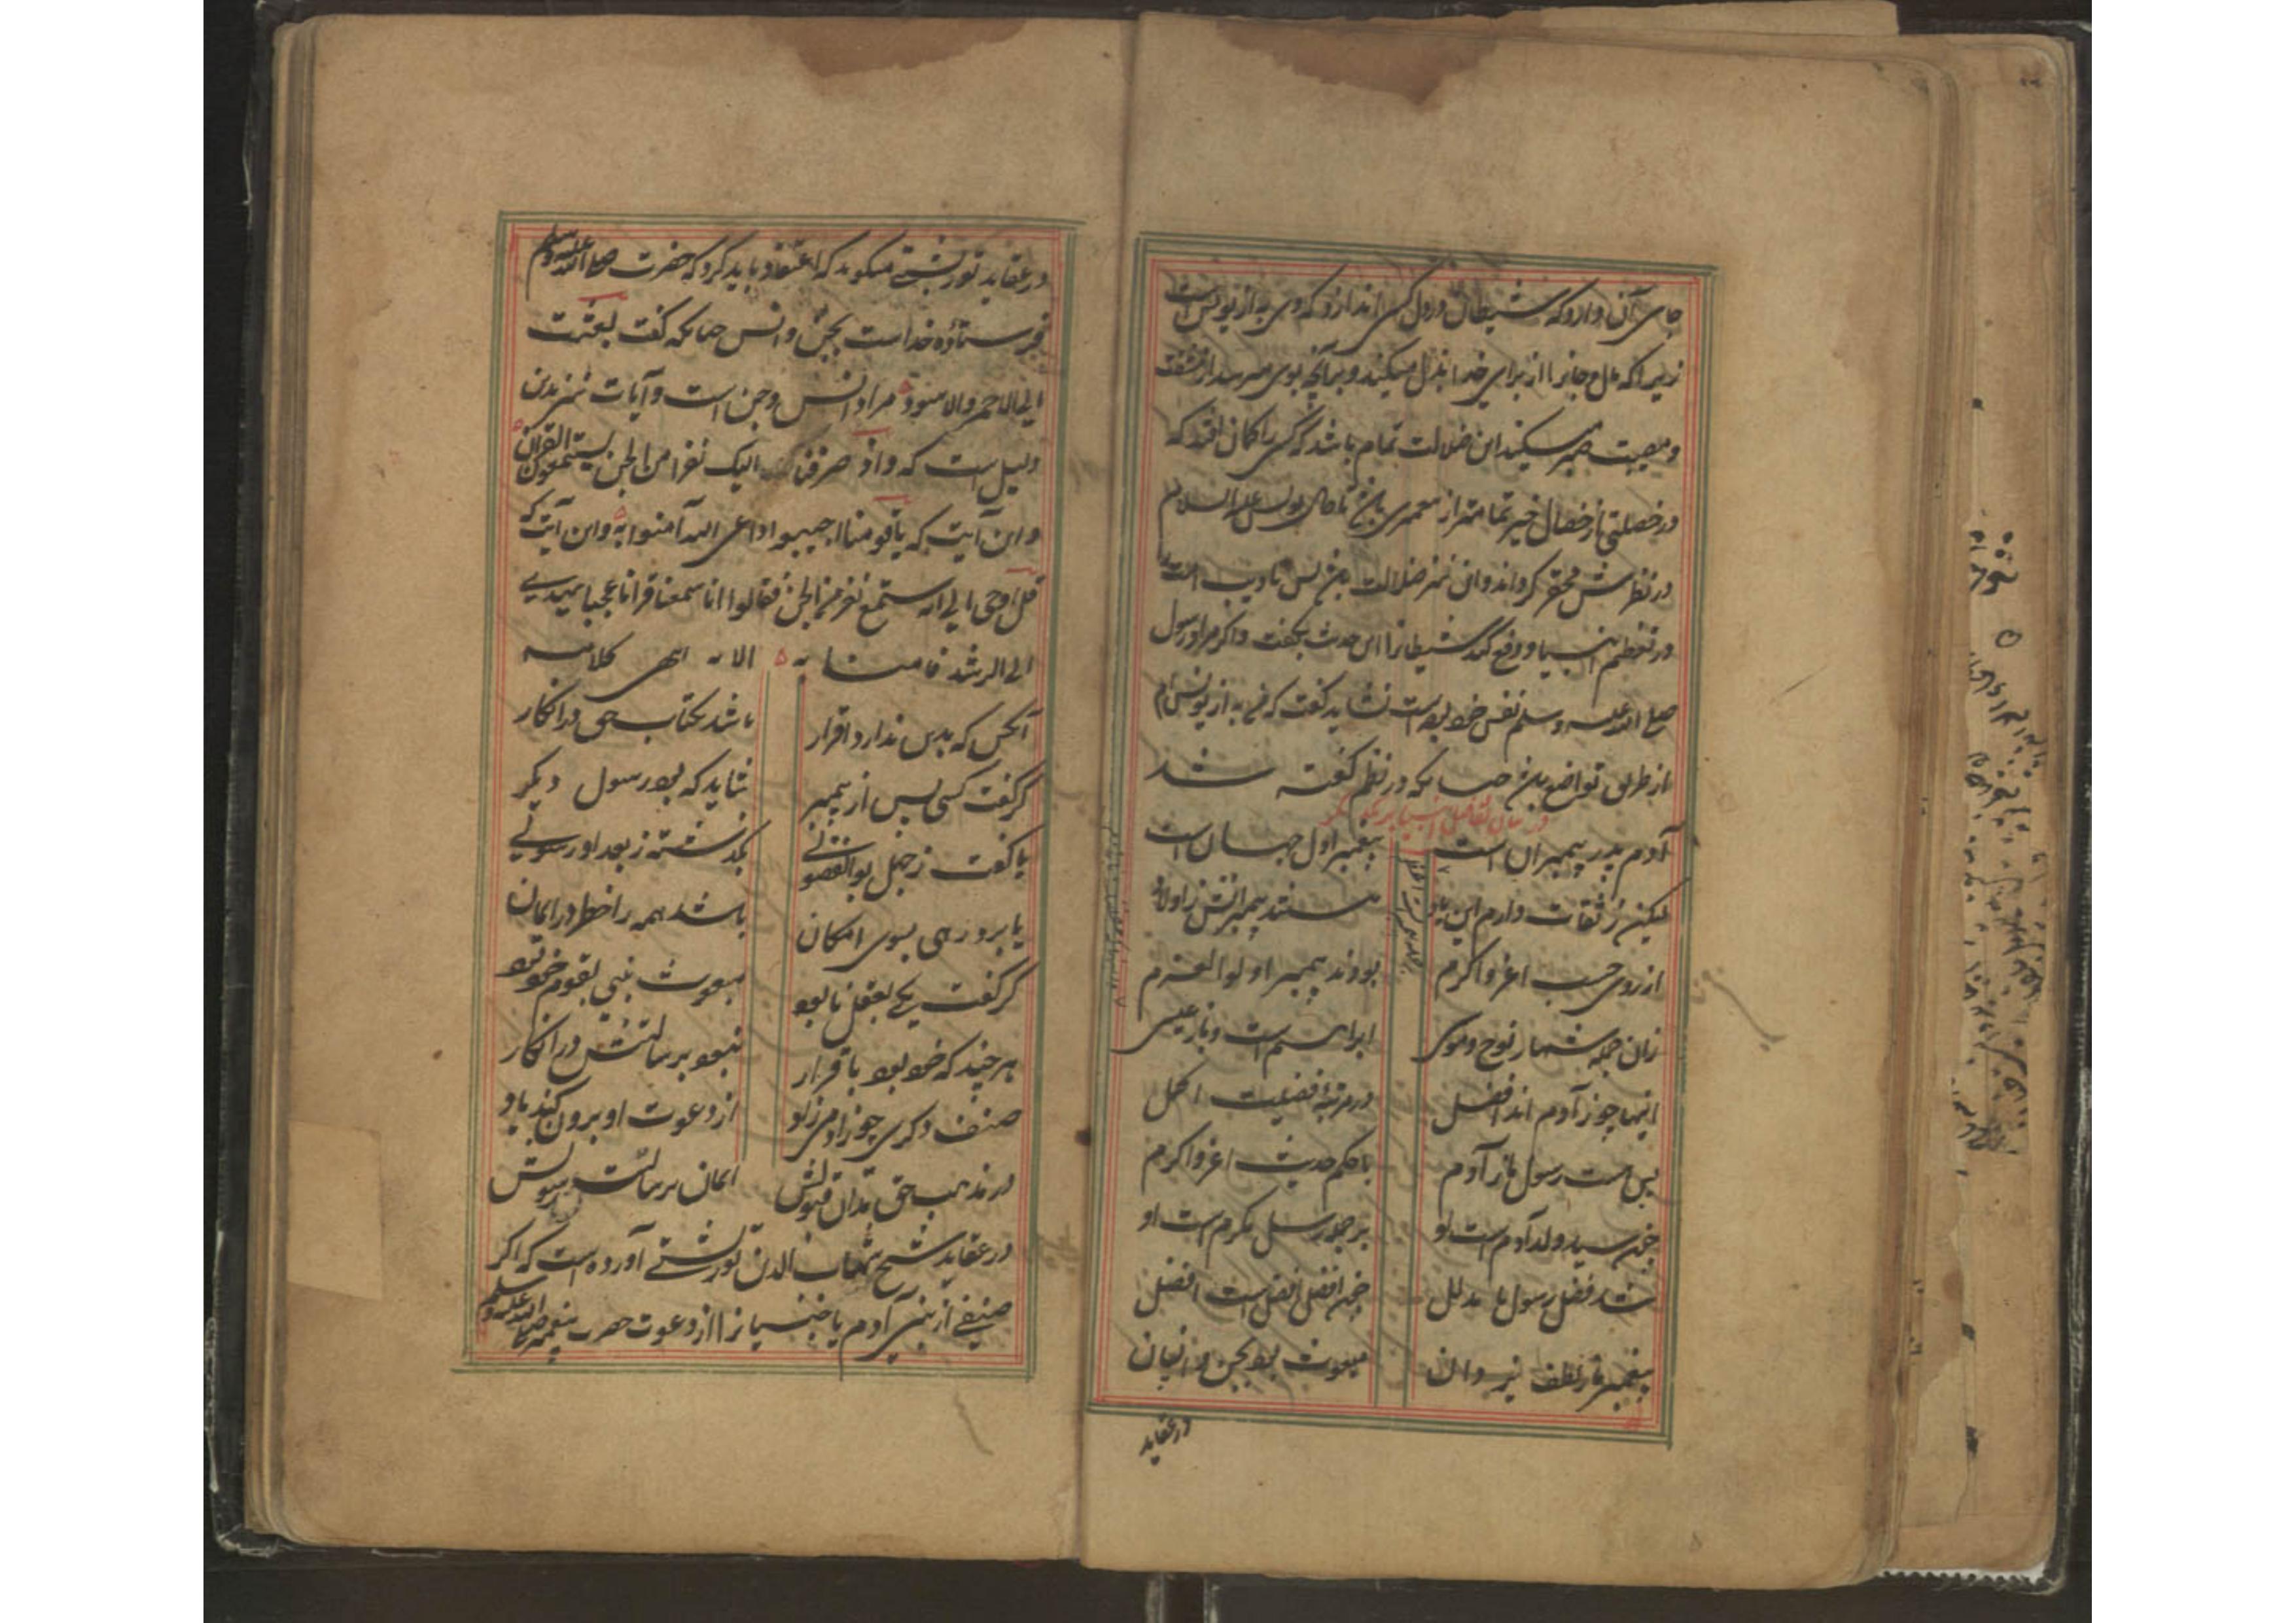 جای آن دارد که شیطان در دل کسی اندازد که وی به از یونس است
زیرا که مال و جانرا از برای خدا بذل میکند و بهر آنچه بوی میرسد از مشقت
و مصیبت صبر میکند این ضلالت تمام باشد که کسی را گمان افتد که
در خصلتی از خصال خیر تمامتر از معمری باشد تا حال یونس علیه السلام
در نظرش محقر گرداند و این نیز ضلالت باشد پس تادیب است
در تعظیم انبیا و دفع کید شیطانرا این حدیث بگفت و اگر مراد رسول
صلی الله علیه وسلم نفس خود بوده است نشاید گفت که من به از یونس ام
از طریق تواضع باشد چنانکه در نظم گفته شد
در بیان تفاضل انبیا بر یکدیگر
آدم پدر پیمبران است پیغمبر اول جهان است
لیکن ز ثقات دارم این یاد هستند پیمبرانش ز اولاد
از روی حسب اعز و اکرم بودند پیمبر اولوالعزم
زان جمله شمار نوح و موسی ابراهیم است و باز عیسی
اینها چو ز آدم اند افضل در مرتبهٔ فضیلت اکمل
پس هست رسول ما ز آدم با حکم حدیث اعز و اکرم
چون سید ولد آدم است او بر جمله رسل مکرم است او
شد فضل رسول ما مدلل چون افضل افضل است افضل
پیغمبر ما ز لطف یزدان مبعوث بود بجن و انسان
در عقاید
در عقاید تورپشتی میگوید که اعتقاد باید کرد که حضرت صلی الله علیه وسلم
فرستاده خداست بجن و انس چنانکه گفت بعثت
الی الاحمر والاسود مراد انس و جن است و آیات نیز بدین
دلیل است که واذ صرفنا الیک نفرا من الجن یستمعون القرآن
و این آیت که یا قومنا اجیبوا داعی الله آمنوا به و این آیت که
قل اوحی الی انه استمع نفر من الجن فقالوا انا سمعنا قرآنا عجبا یهدی
الی الرشد فآمنا به الآیه انتهی کلامه
آنکس که بدین ندارد اقرار باشد بکتاب حق در انکار
گر گفت کسی پس از پیمبر شاید که بود رسول دیگر
یا گفت ز جهل بوالفضولی بگذشته ز بعد او رسولی
یا برد رهی بسوی امکان باشد همه را خطر در ایمان
گر گفت یکی بعقل نابود مبعوث نبی بقوم خود بود
هر چند که خود بود باقرار نبود برسالتش در انکار
صنف دگری چو زادمی زاد از دعوت او برون کند یاد
در مذهب حق مدان قبولش ایمان برسالت رسولش
در عقاید شیخ شهاب الدین تورپشتی آورده است که اگر
صنفی از بنی آدم یا جنیانرا از دعوت حضرت پیغمبر صلی الله علیه وسلم